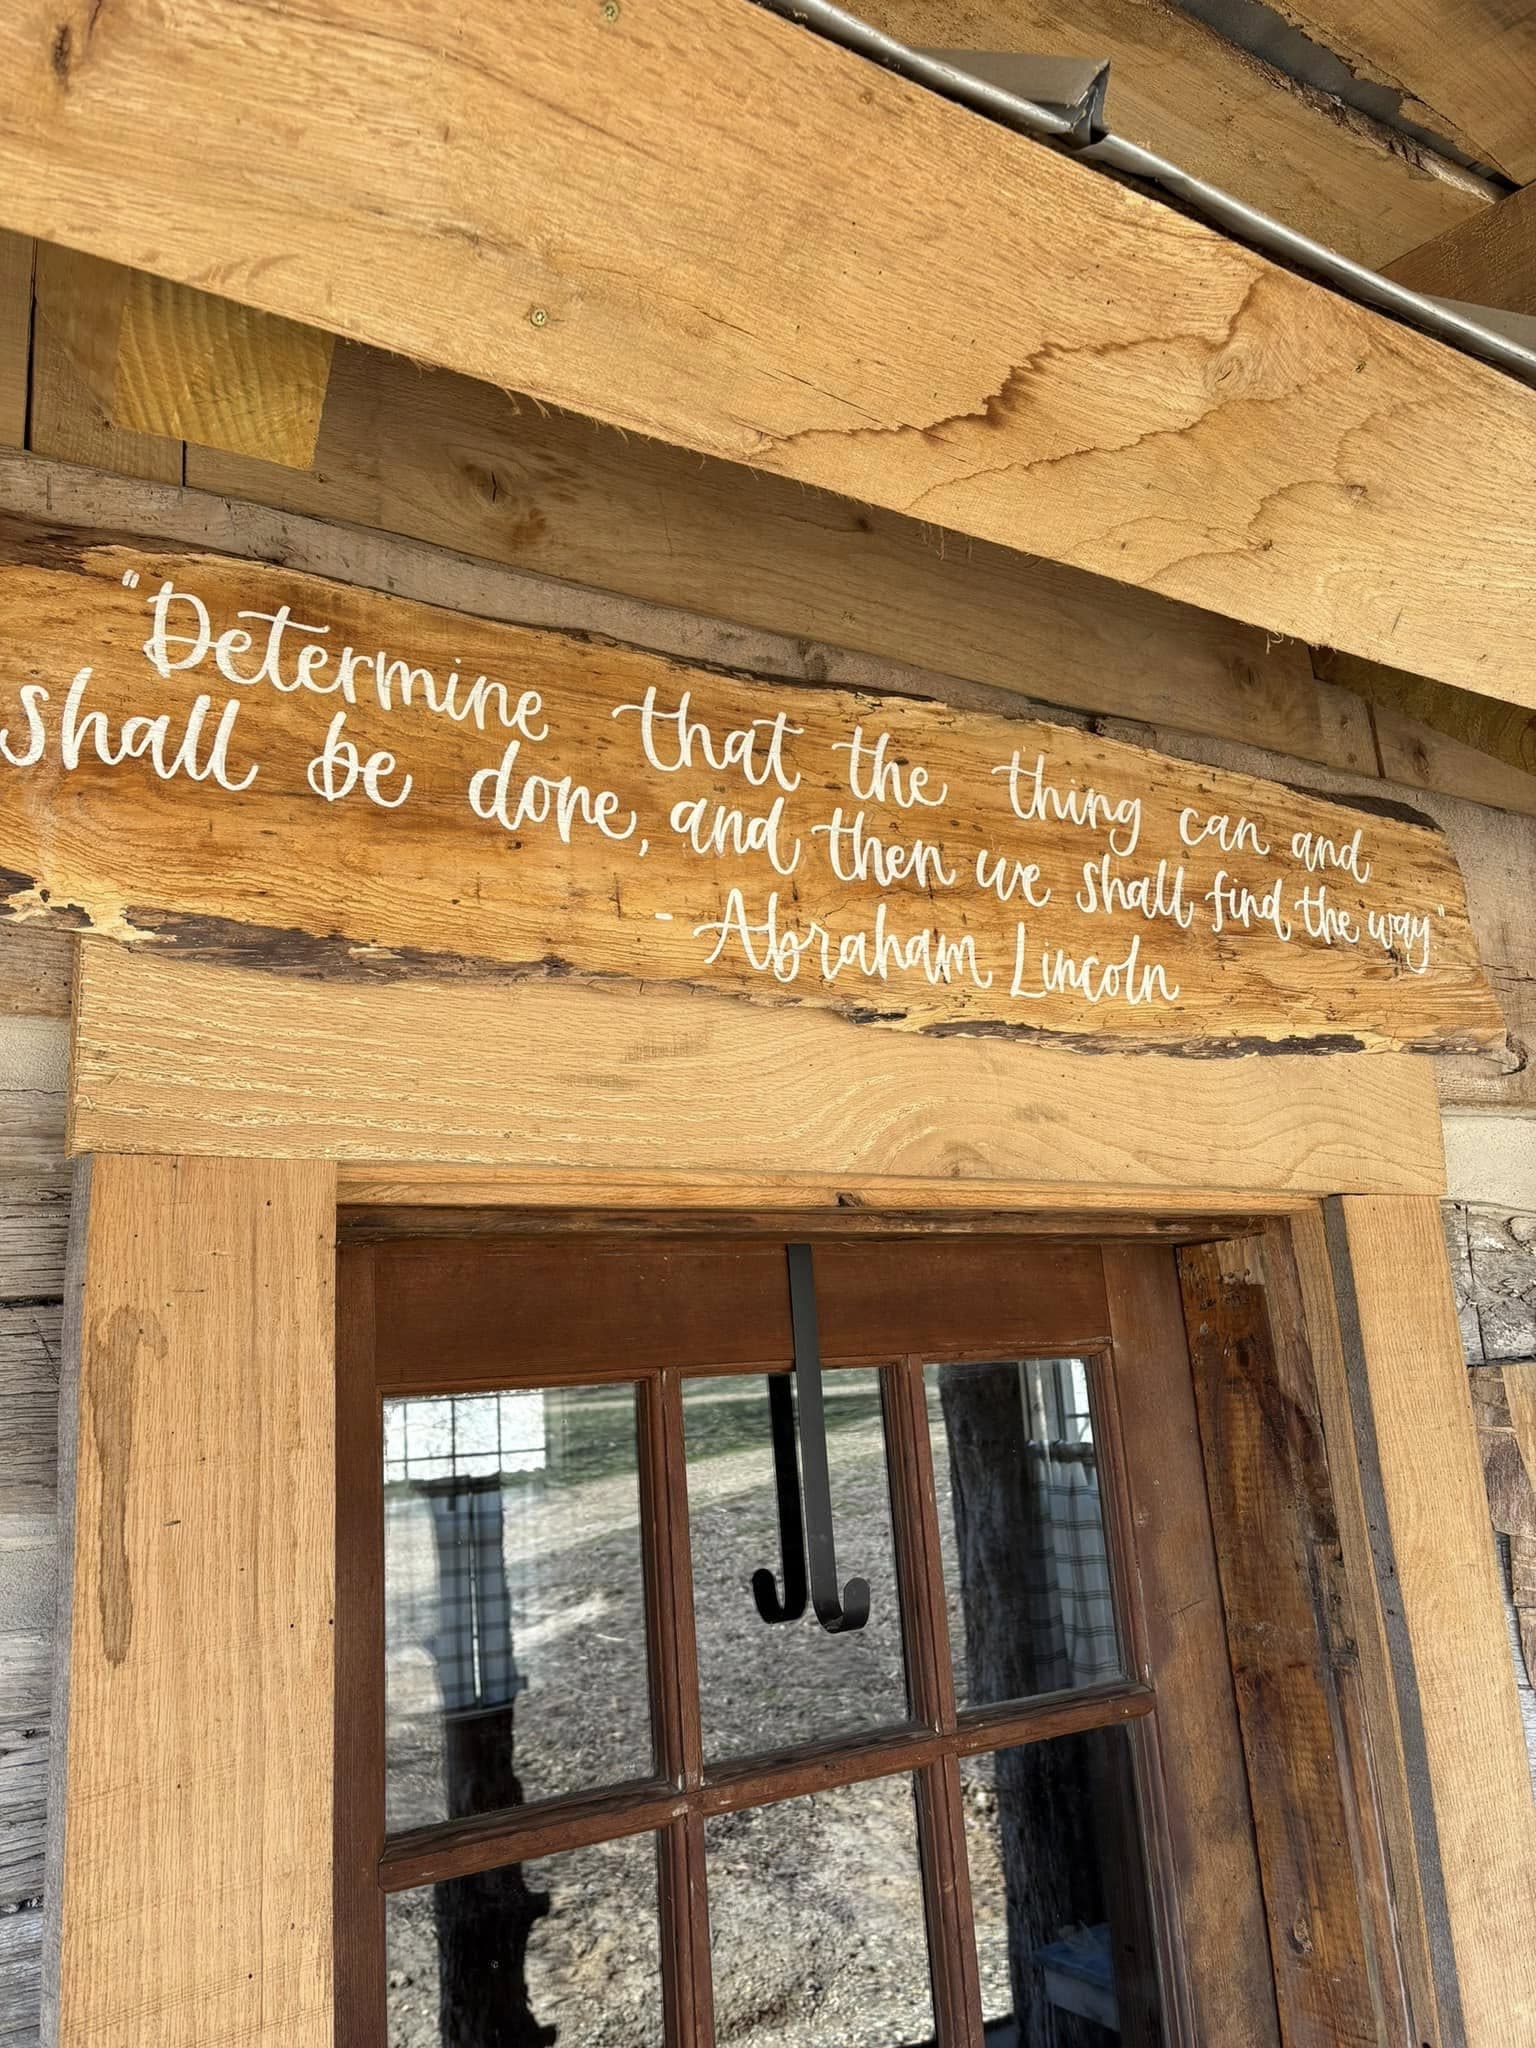 "Determine that the thing can and
shall be done, and then we shall find the way."
- Abraham Lincoln